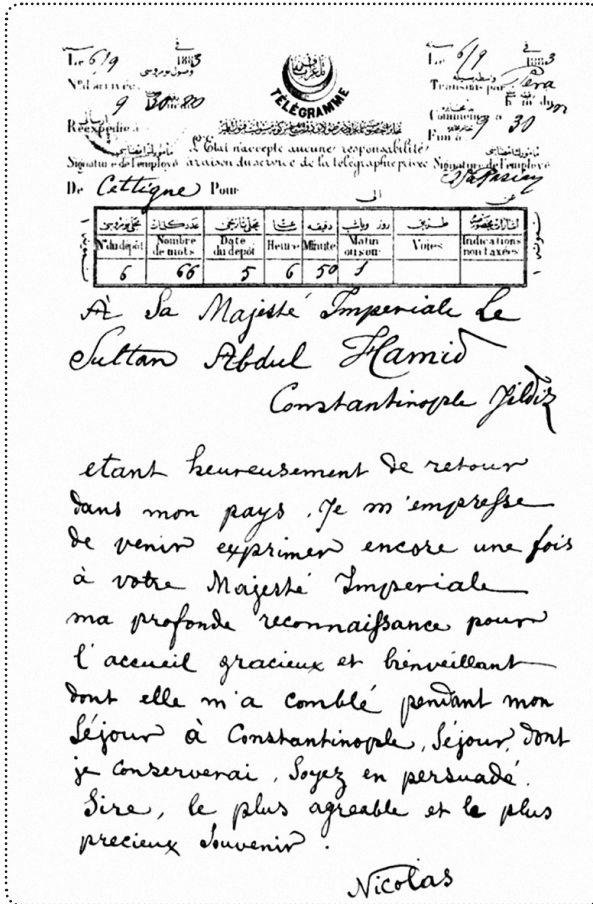 Le 6/9 1883
Le 6/9 1883
N° d'arrivée
Transmis par Pera
9
TÉLÉGRAMME
Réexpédié à
30
L'État n'accepte aucune responsabilité
Signature de l'employé
à raison du service de la télégraphie privée
Signature de l'employé
De Cettigne Pour
N° du dépôt Nombre de mots Date du dépôt Heure Minute Matin ou soir Voies Indications non taxées
6 66 5 6 50 s
À Sa Majesté Imperiale Le
Sultan Abdul Hamid
Constantinople Jildiz
etant heureusement de retour
dans mon pays. Je m'empresse
de venir exprimer encore une fois
à votre Majesté Imperiale
ma profonde reconnaissance pour
l'accueil gracieux et bienveillant
dont elle m'a comblé pendant mon
Séjour à Constantinople, Séjour, dont
je conserverai, Soyez en persuadé.
Sire, le plus agreable et le plus
precieux Souvenir.
Nicolas